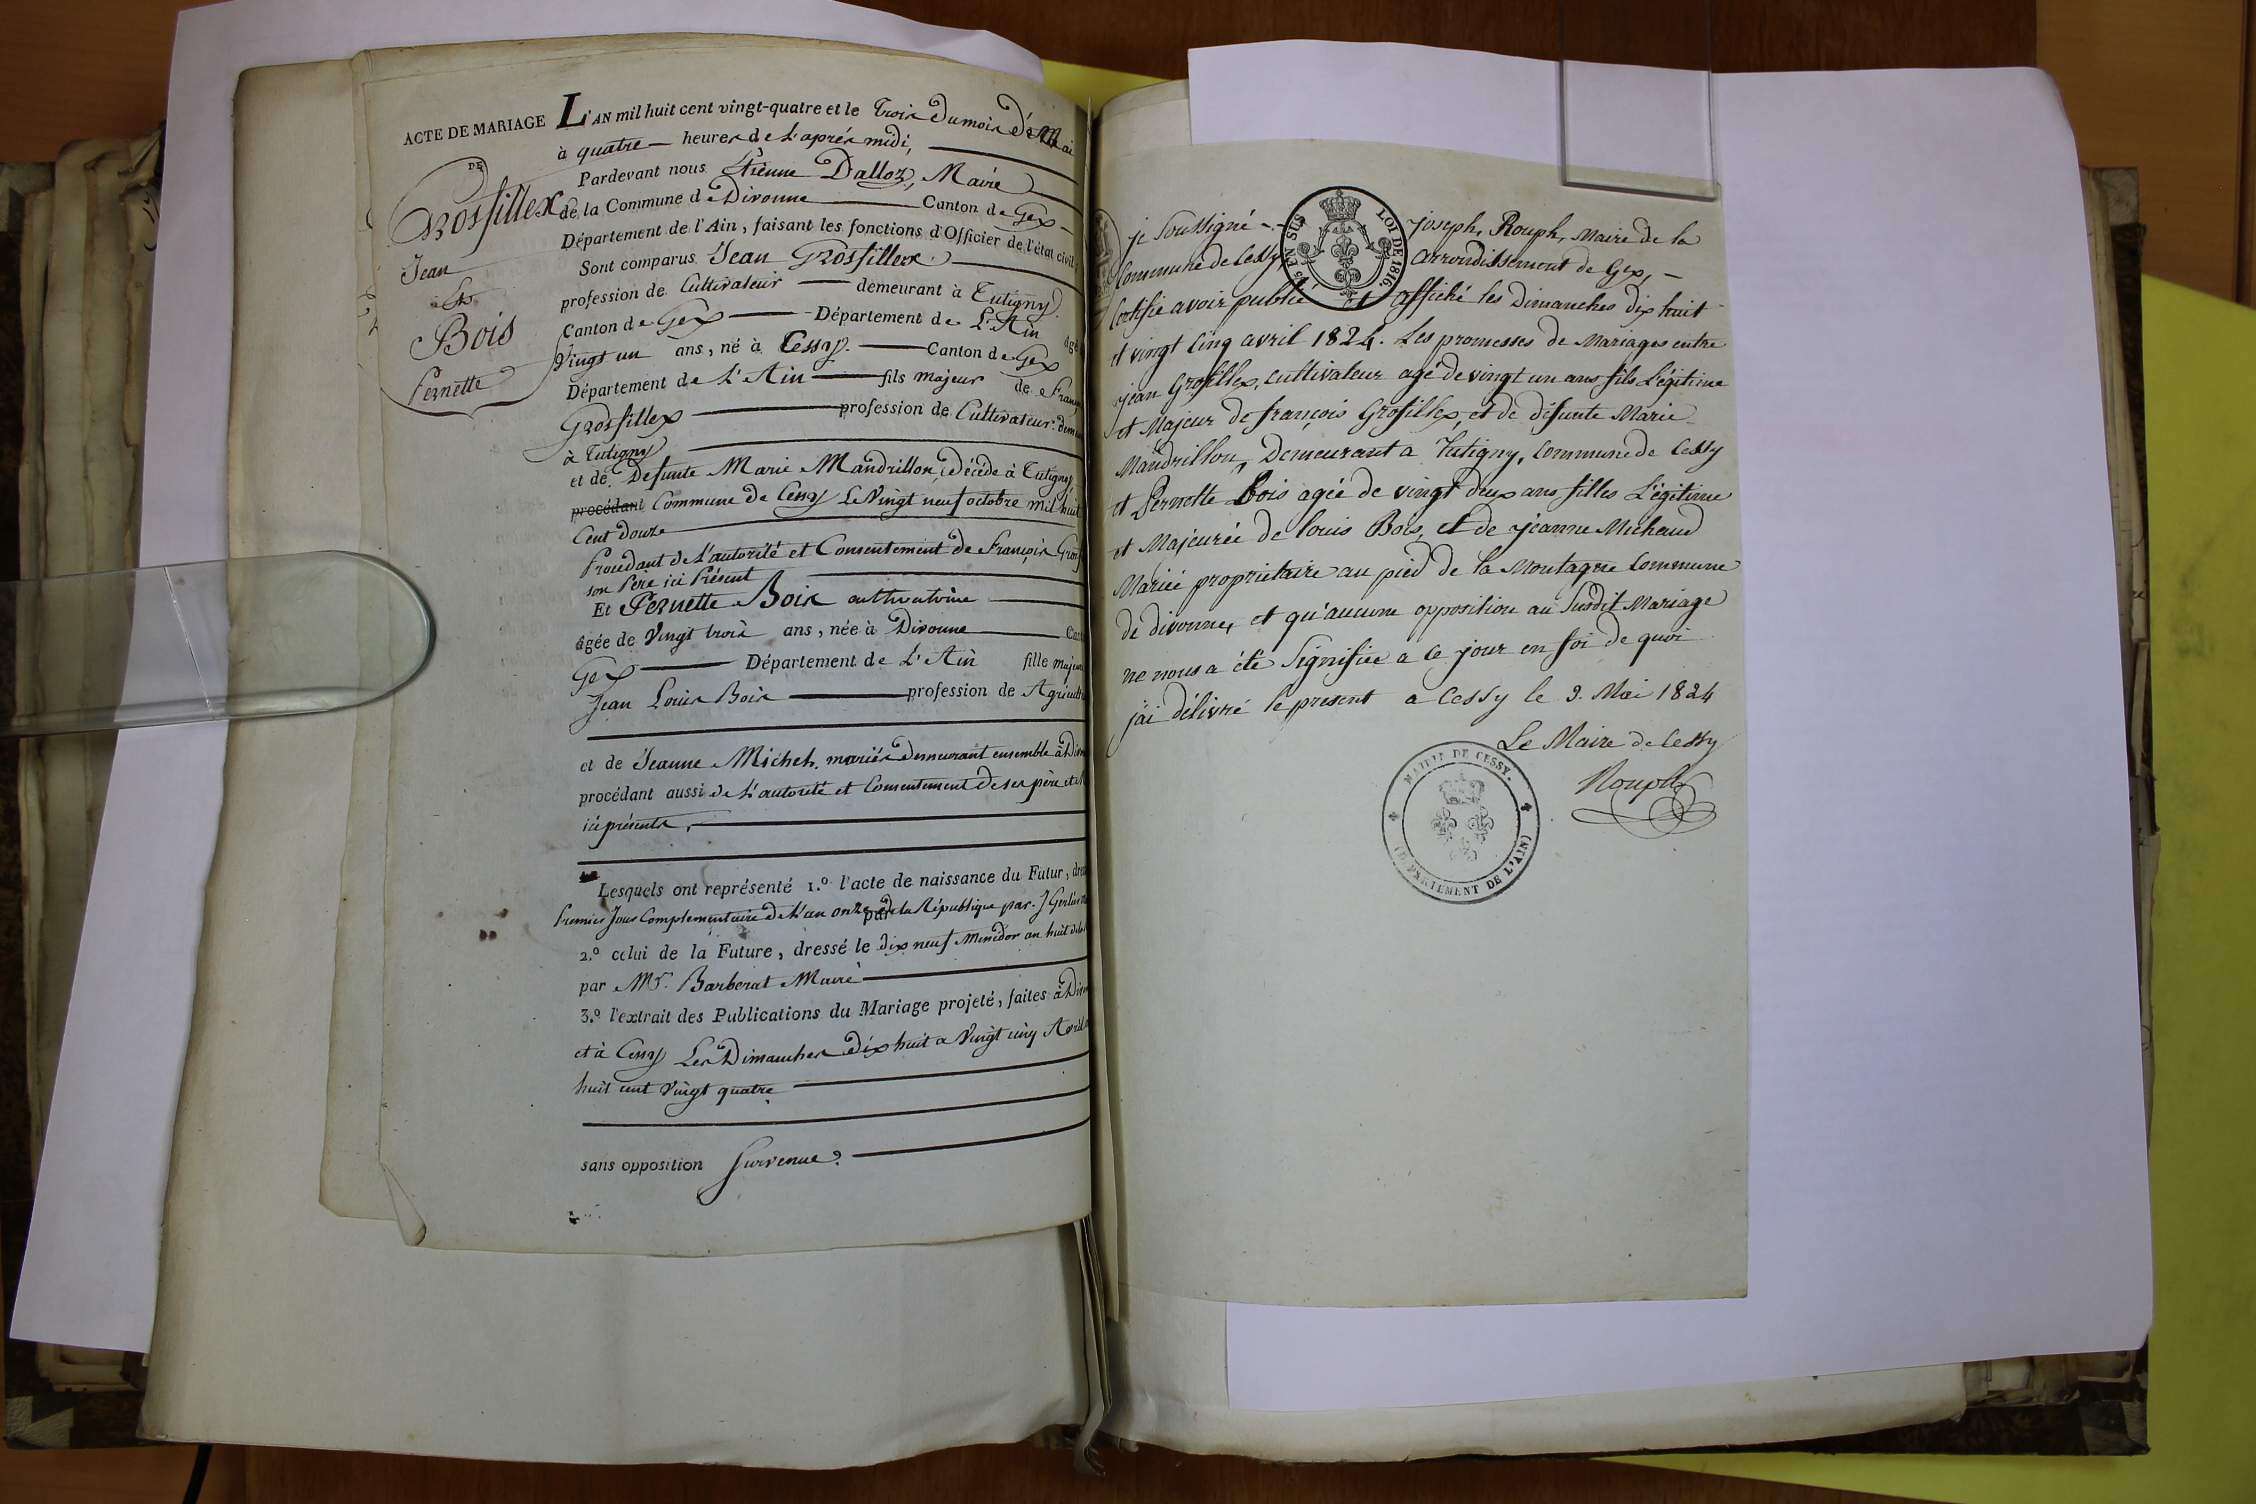 ACTE DE MARIAGE
DE
Grosfillex
Jean
Et
Bois
Pernette
L'AN mil huit cent vingt-quatre et le trois du mois de Mai
à quatre heures de l'aprés midi,
Pardevant nous Etienne Dalloz, Maire
de la Commune de Divonne Canton de Gex
Département de l'Ain, faisant les fonctions d'Officier de l'état civil
Sont comparus Jean Grosfillex
profession de Cultivateur demeurant à Tutigny
Canton de Gex Département de L'Ain âgé
Vingt un ans, né à Cessy Canton de Gex
Département de L'Ain fils majeur de
Grosfillex profession de Cultivateur
à Tutigny
et de Defunte Marie Mandrillon, Décédé à Tutigny
procédant Commune de Cessy Le Vingt neuf octobre mil huit
Cent Douze
Procedant de L'autorité et Consentement de François
son Pere ici Présent
Et Pernette Bois cultivatrice
âgée de Vingt trois ans, née à Divonne
Gex Département de L'Ain fille
Jean Louis Bois profession de
et de Jeanne Michet, mariés Demeurant ensemble à
procédant aussi de L'autorité et Consentement De ses père et
ici présents,
Lesquels ont représenté 1.º l'acte de naissance du Futur,
Premier Jour Complementaire de L'an onze de la République par J
2.º celui de la Future, dressé le dix neuf Messidor an huit
par Mr. Barberat Maire
3.º l'extrait des Publications du Mariage projeté, faites à
et à Cessy Les Dimanches Dix huit a Vingt cinq Avril
huit cent Vingt quatre
sans opposition Survenue.
EN SUS
LOI DE 1816.
je soussigné Joseph Rouph, Maire de la
Commune de Cessy, arrondissement de Gex,
Certifie avoir publié et affiché les Dimanches dix huit
et vingt Cinq avril 1824. Les promesses de Mariages entre
jean Grosfillex, cultivateur agé de vingt un ans fils Légitime
et Majeur de françois Grosfillex, et de défunte Marie
Mandrillon, Demeurant a Tutigny, Commune de Cessy
et Pernette Bois agée de vingt deux ans filles Légitime
et Majeurée de louis Bois, et de jeanne Michaud
Mariée proprietaire au pied de la Montagne Commune
de divonne, et qu'aucune opposition au Susdit Mariage
ne nous a été Signifiée a ce jour en foi de quoi
j'ai délivré le present a Cessy le 3. Mai 1824
Le Maire de Cessy
Rouph
MAIRIE DE CESSY.
(DÉPARTEMENT DE L'AIN)